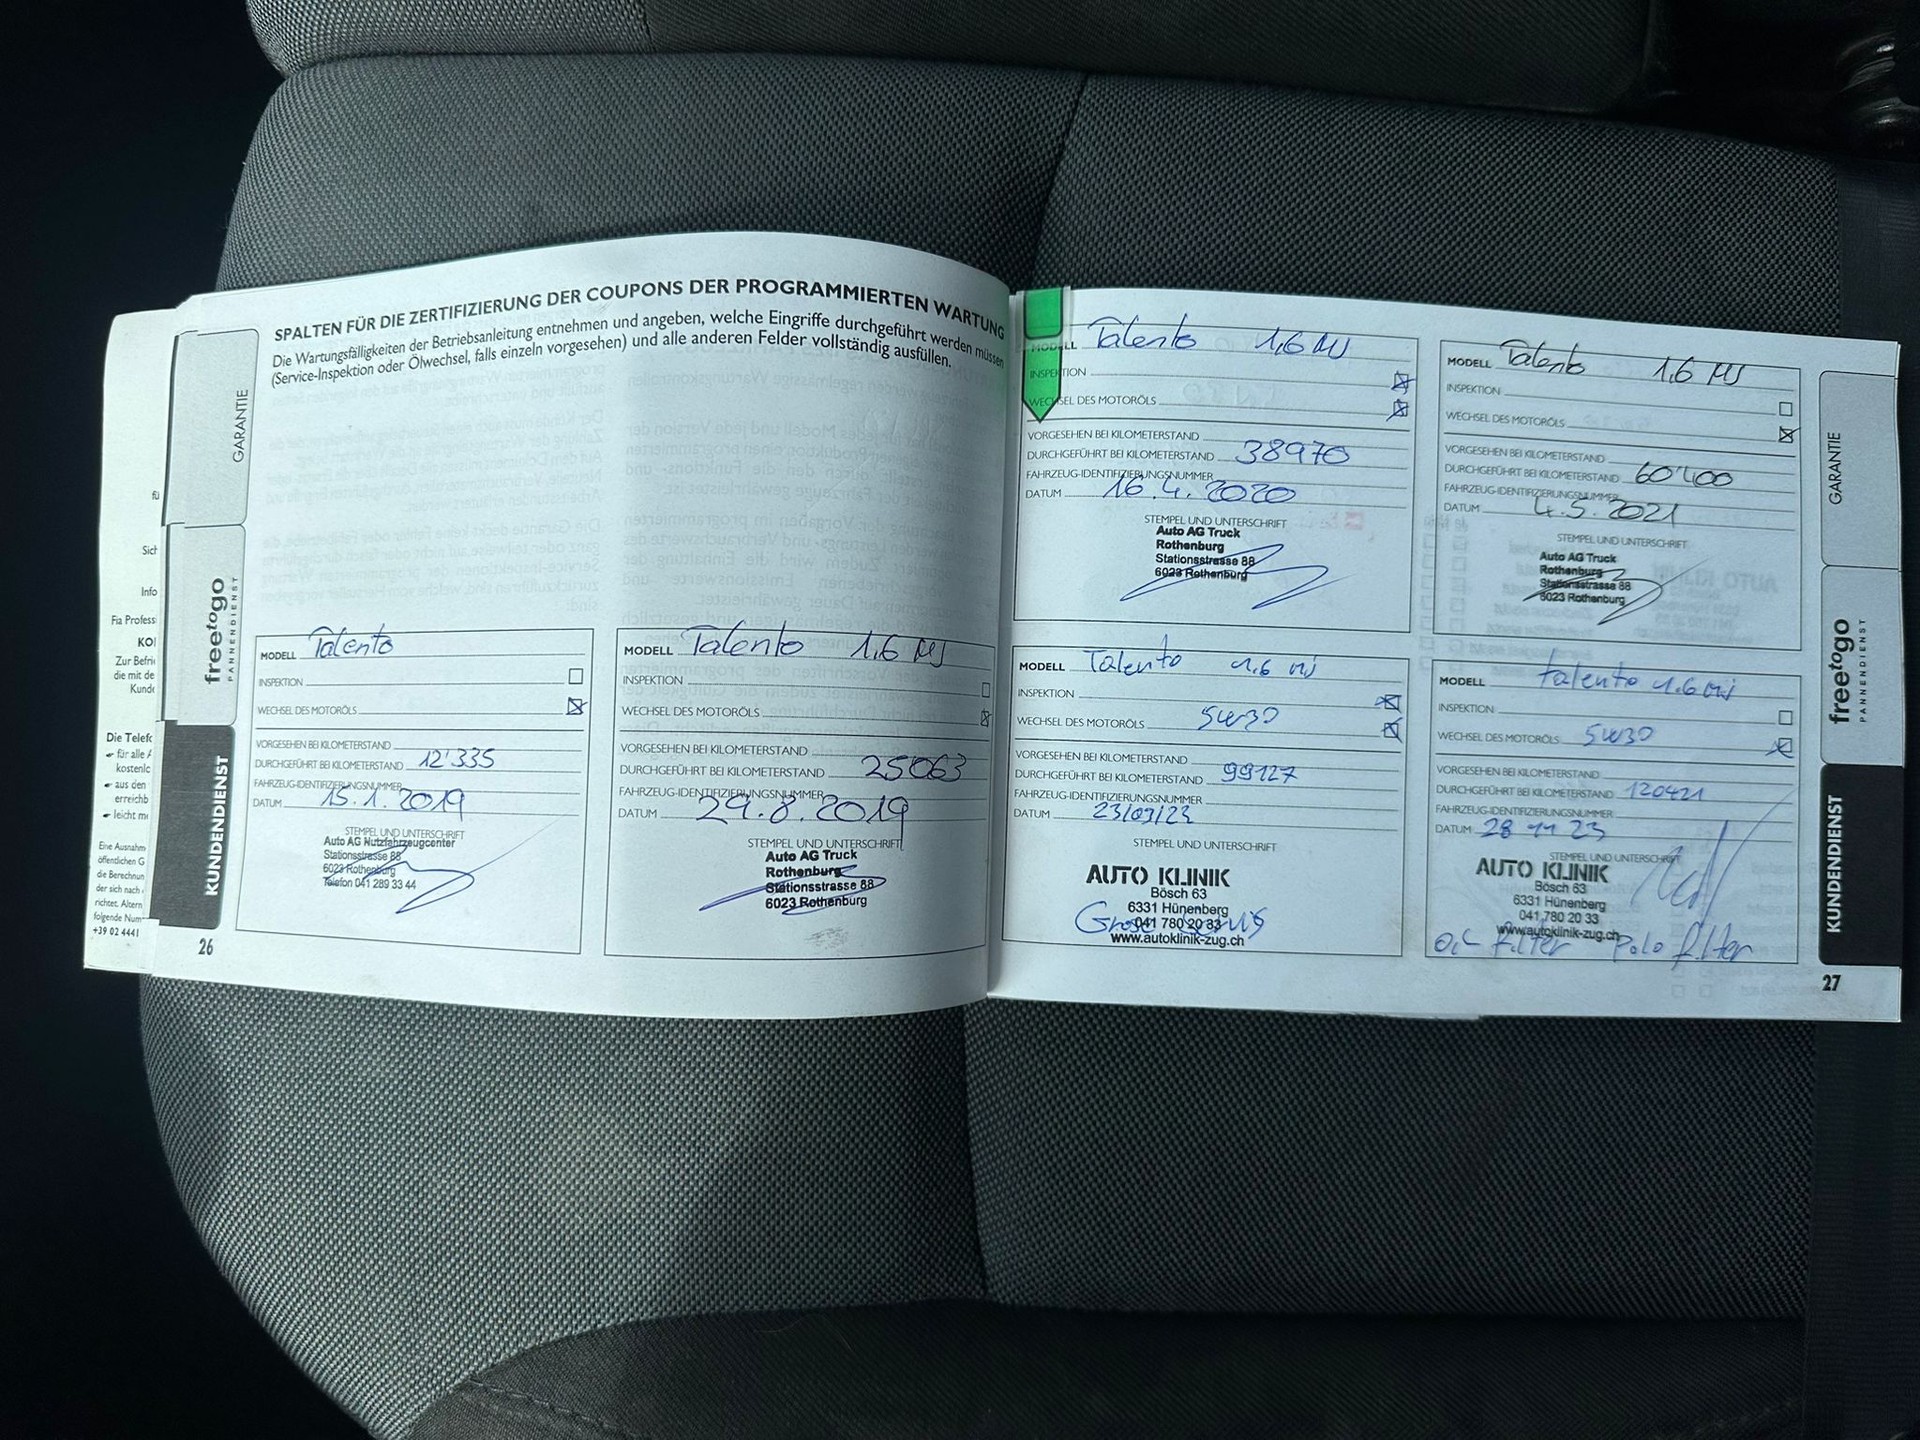 SPALTEN FÜR DIE ZERTIFIZIERUNG DER COUPONS DER PROGRAMMIERTEN WARTUNG
Die Wartungsfälligkeiten der Betriebsanleitung entnehmen und angeben, welche Eingriffe durchgeführt werden müssen
(Service-Inspektion oder Ölwechsel, falls einzeln vorgesehen) und alle anderen Felder vollständig ausfüllen.
GARANTIE
freetogo
PANNENDIENST
KUNDENDIENST
Sich
Info
Fia Profess
KO
Zur Befri
die mit de
Kunde
Die Telefo
für alle
kostenlo
aus den
erreichb
leicht me
Eine Ausnahm
öffentlichen G
die Berechnun
der sich nach
richtet. Altern
folgende Num
+39 02 4441
MODELL Talento
INSPEKTION
WECHSEL DES MOTORÖLS
VORGESEHEN BEI KILOMETERSTAND
DURCHGEFÜHRT BEI KILOMETERSTAND 12'335
FAHRZEUG-IDENTIFIZIERUNGSNUMMER
DATUM 15.1.2019
STEMPEL UND UNTERSCHRIFT
Auto AG Nutzfahrzeugcenter
Stationsstrasse 88
6023 Rothenburg
Telefon 041 289 33 44
26
MODELL Talento 1.6 MJ
INSPEKTION
WECHSEL DES MOTORÖLS
VORGESEHEN BEI KILOMETERSTAND
DURCHGEFÜHRT BEI KILOMETERSTAND 25063
FAHRZEUG-IDENTIFIZIERUNGSNUMMER
DATUM 29.8.2019
STEMPEL UND UNTERSCHRIFT
Auto AG Truck
Rothenburg
Stationsstrasse 88
6023 Rothenburg
MODELL Talento 1.6 MJ
INSPEKTION
WECHSEL DES MOTORÖLS
VORGESEHEN BEI KILOMETERSTAND
DURCHGEFÜHRT BEI KILOMETERSTAND 38970
FAHRZEUG-IDENTIFIZIERUNGSNUMMER
DATUM 16.4.2020
STEMPEL UND UNTERSCHRIFT
Auto AG Truck
Rothenburg
Stationsstrasse 88
6023 Rothenburg
MODELL Talento 1.6 MJ
INSPEKTION
WECHSEL DES MOTORÖLS
VORGESEHEN BEI KILOMETERSTAND
DURCHGEFÜHRT BEI KILOMETERSTAND 60'400
FAHRZEUG-IDENTIFIZIERUNGSNUMMER
DATUM 4.5.2021
STEMPEL UND UNTERSCHRIFT
Auto AG Truck
Rothenburg
Stationsstrasse 88
6023 Rothenburg
MODELL Talento 1.6 MJ
INSPEKTION
WECHSEL DES MOTORÖLS 5W30
VORGESEHEN BEI KILOMETERSTAND
DURCHGEFÜHRT BEI KILOMETERSTAND 99127
FAHRZEUG-IDENTIFIZIERUNGSNUMMER
DATUM
STEMPEL UND UNTERSCHRIFT
AUTO KLINIK
Bösch 63
6331 Hünenberg
041 780 20 33
www.autoklinik-zug.ch
MODELL Talento 1.6 MJ
INSPEKTION
WECHSEL DES MOTORÖLS 5W30
VORGESEHEN BEI KILOMETERSTAND
DURCHGEFÜHRT BEI KILOMETERSTAND 120421
FAHRZEUG-IDENTIFIZIERUNGSNUMMER
DATUM 28 11 23
STEMPEL UND UNTERSCHRIFT
AUTO KLINIK
Bösch 63
6331 Hünenberg
041 780 20 33
www.autoklinik-zug.ch
oil filter Polo filter
GARANTIE
freetogo
PANNENDIENST
KUNDENDIENST
27